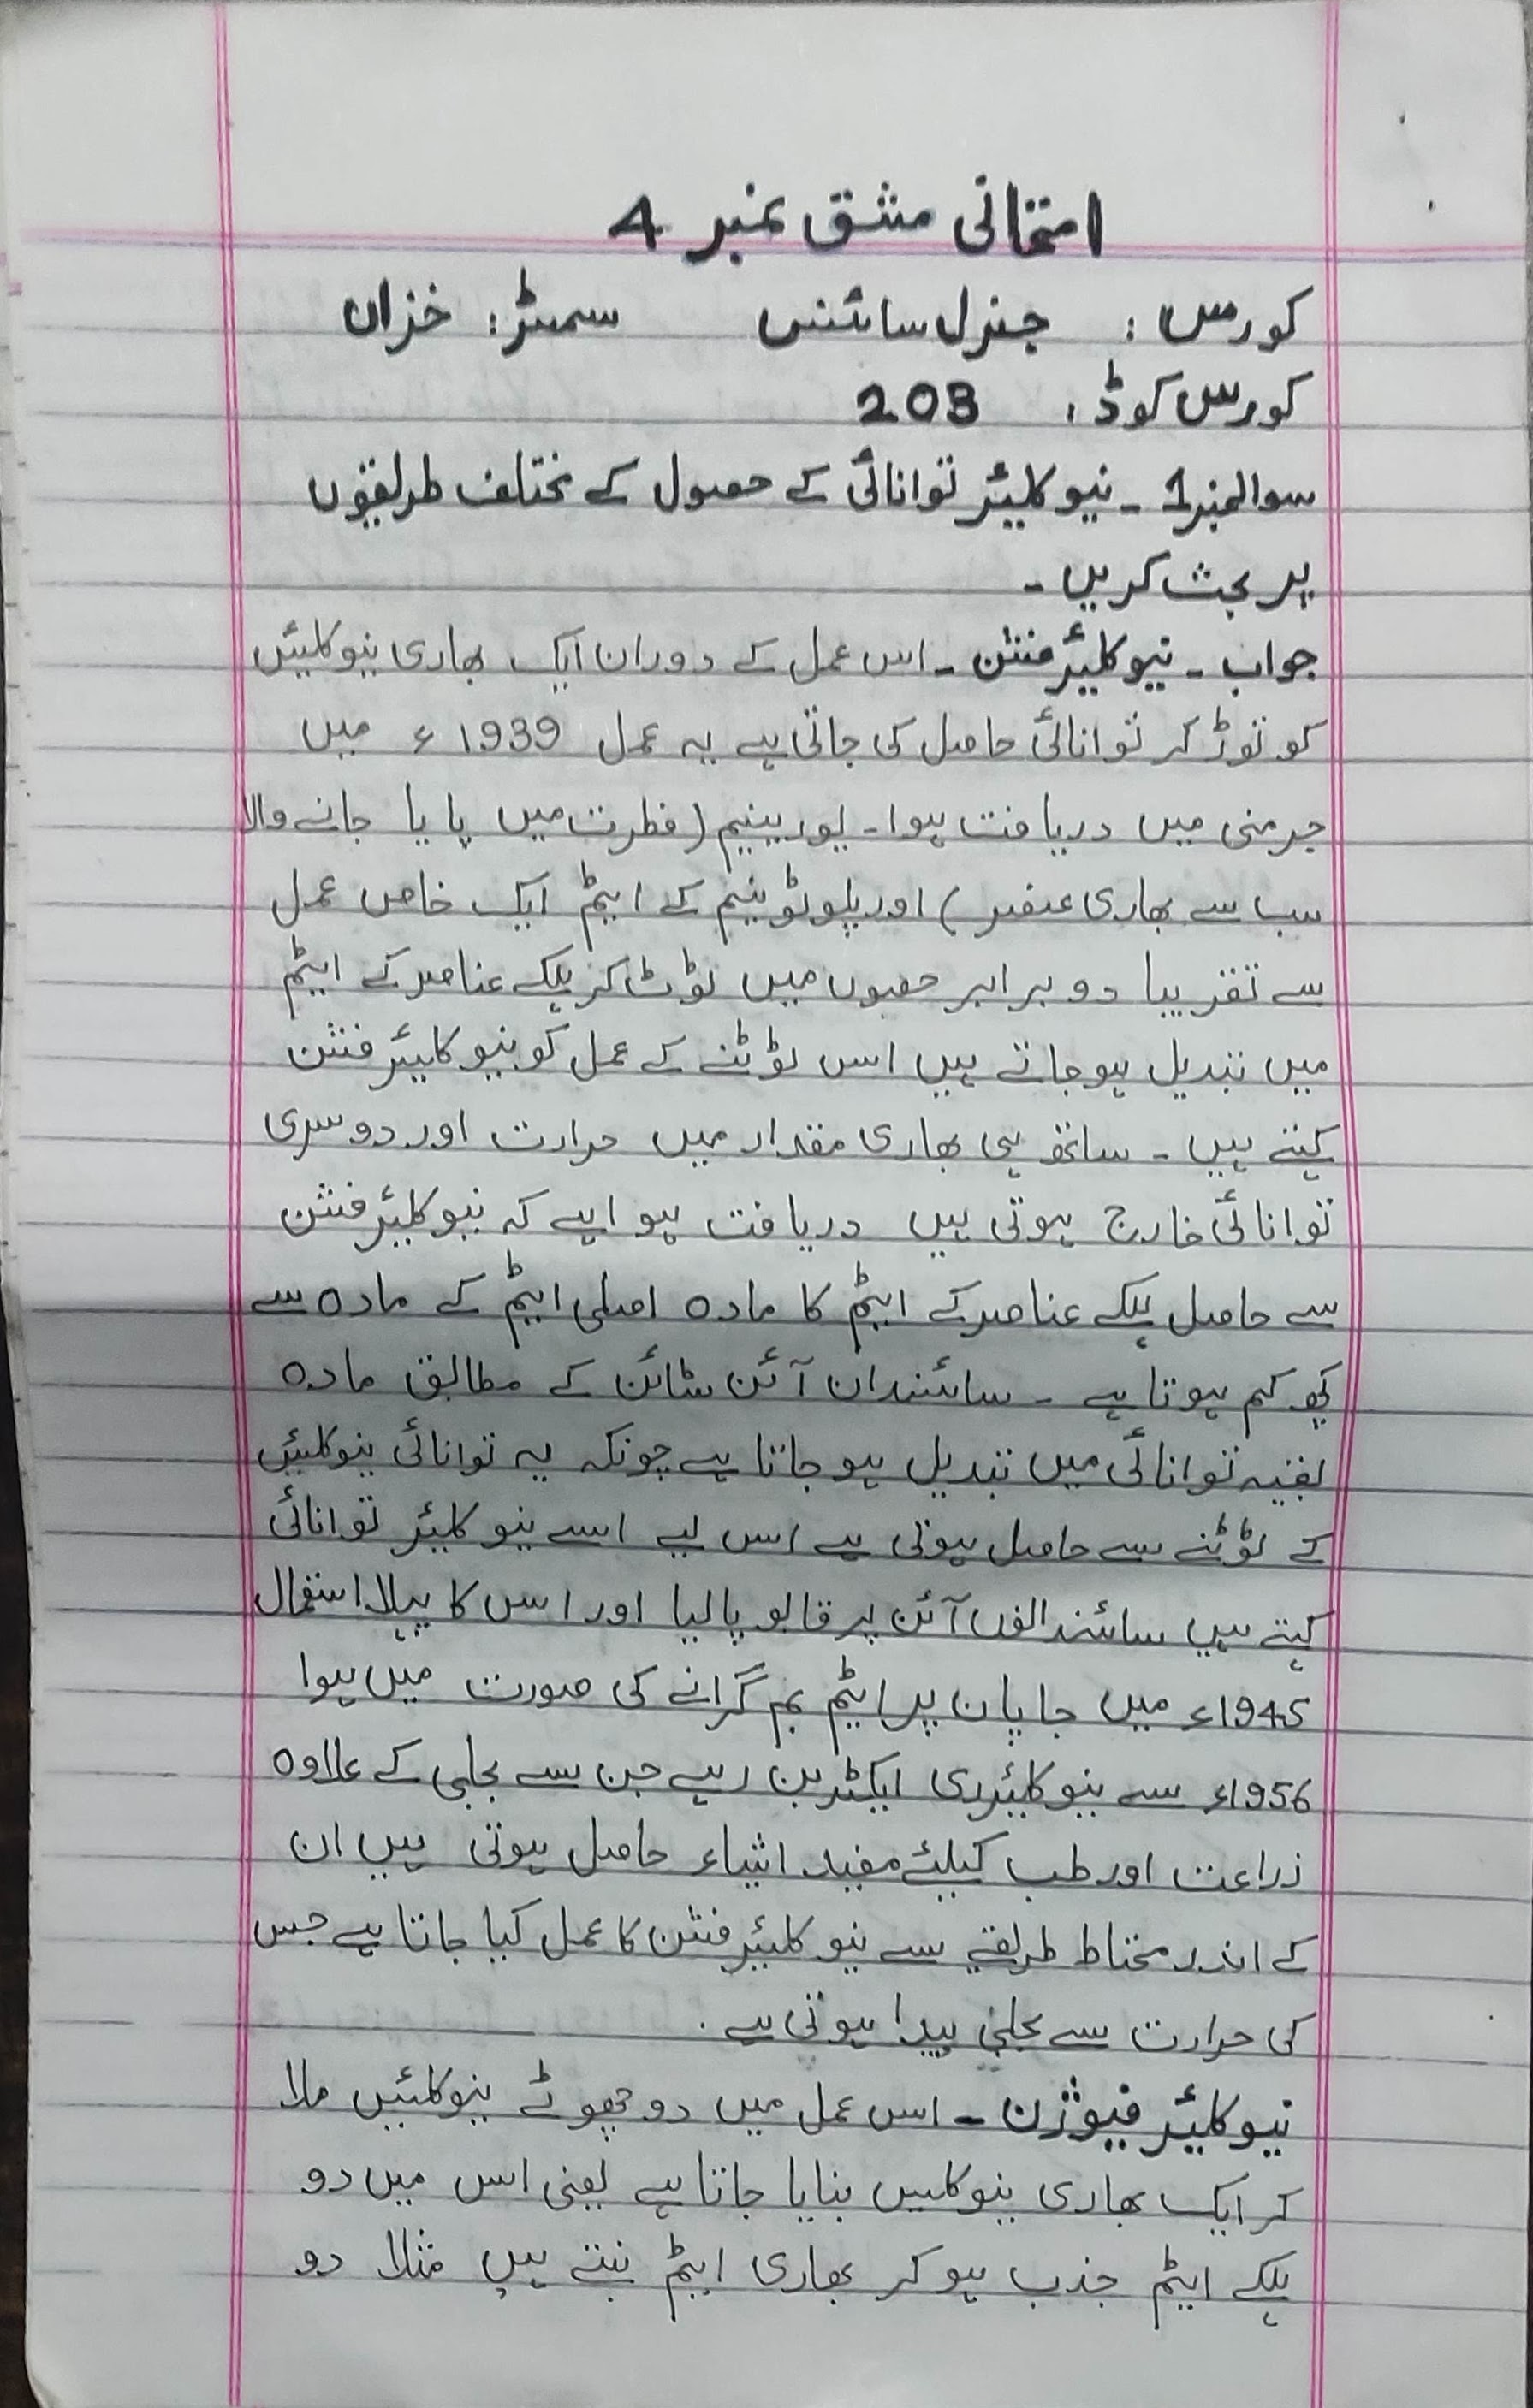 امتحانی مشق نمبر 4
کورس : جنرل سائنس سمسٹر: خزاں
کورس کوڈ: 203
سوالنمبر1 - نیوکلیئر توانائی کے حصول کے مختلف طریقوں
پر بحث کریں -
جواب - نیوکلیئر فشن - اس عمل کے دوران ایک بھاری نیوکلیئس
کو توڑ کر توانائی حاصل کی جاتی ہے یہ عمل 1939ء میں
جرمنی میں دریافت ہوا - یورینیم (فطرت میں پایا جانے والا
سب سے بھاری عنصر) اور پلوٹونیم کے ایٹم ایک خاص عمل
سے تقریبا دو برابر حصوں میں ٹوٹ کر ہلکے عناصر کے ایٹم
میں تبدیل ہو جاتے ہیں اس ٹوٹنے کے عمل کو نیوکلیئر فشن
کہتے ہیں - ساتھ ہی بھاری مقدار میں حرارت اور دوسری
توانائی خارج ہوتی ہیں دریافت ہوا ہے کہ نیوکلیئر فشن
سے حاصل ہلکے عناصر کے ایٹم کا مادہ اصلی ایٹم کے مادہ سے
کچھ کم ہوتا ہے - سائنسدان آئن سٹائن کے مطابق مادہ
بقیہ توانائی میں تبدیل ہو جاتا ہے چونکہ یہ توانائی نیوکلیئس
کے ٹوٹنے سے حاصل ہوتی ہے اس لیے اسے نیوکلیئر توانائی
کہتے ہیں آئن پر قابو پا لیا اور اس کا پہلا استعمال
1945ء میں جاپان پر ایٹم بم گرانے کی صورت میں ہوا
1956ء سے نیوکلیئر ری ایکٹر بن رہے جن سے بجلی کے علاوہ
زراعت اور طب کیلئے مفید اشیاء حاصل ہوتی ہیں ان
کے اندر محتاط طریقے سے نیوکلیئر فشن کا عمل کیا جاتا ہے جس
کی حرارت سے بجلی پیدا ہوتی ہے.
نیوکلیئر فیوژن - اس عمل میں دو چھوٹے نیوکلئیس ملا
کر ایک بھاری نیوکلیس بنایا جاتا ہے یعنی اس میں دو
ہلکے ایٹم جذب ہو کر بھاری ایٹم بنتے ہیں مثلا دو